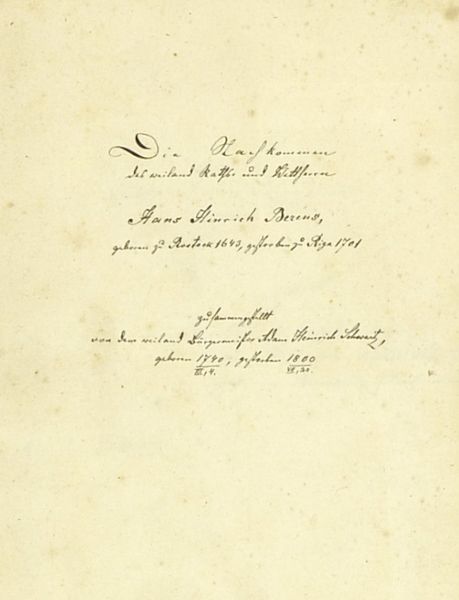 Die Nachkommen
des weiland Rathsh. und Wettherrn
Hans Hinrich Berens,
geboren zu Rostock 1643, gestorben zu Riga 1701
zusammengestellt
von dem weiland Bürgermeister Adam Heinrich Schwartz,
geboren 1740, gestorben 1800
III, 4.